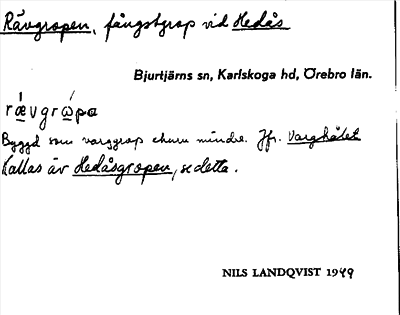 Rävgropen, fångstgrop vid Hedås
Bjurtjärns sn, Karlskoga hd, Örebro län.
rǽvgrὼpα
Byggd som varggrop ehuru mindre. Jfr. Varghålet
Kallas äv Hedåsgropen, se detta.
NILS LANDQVIST 1949